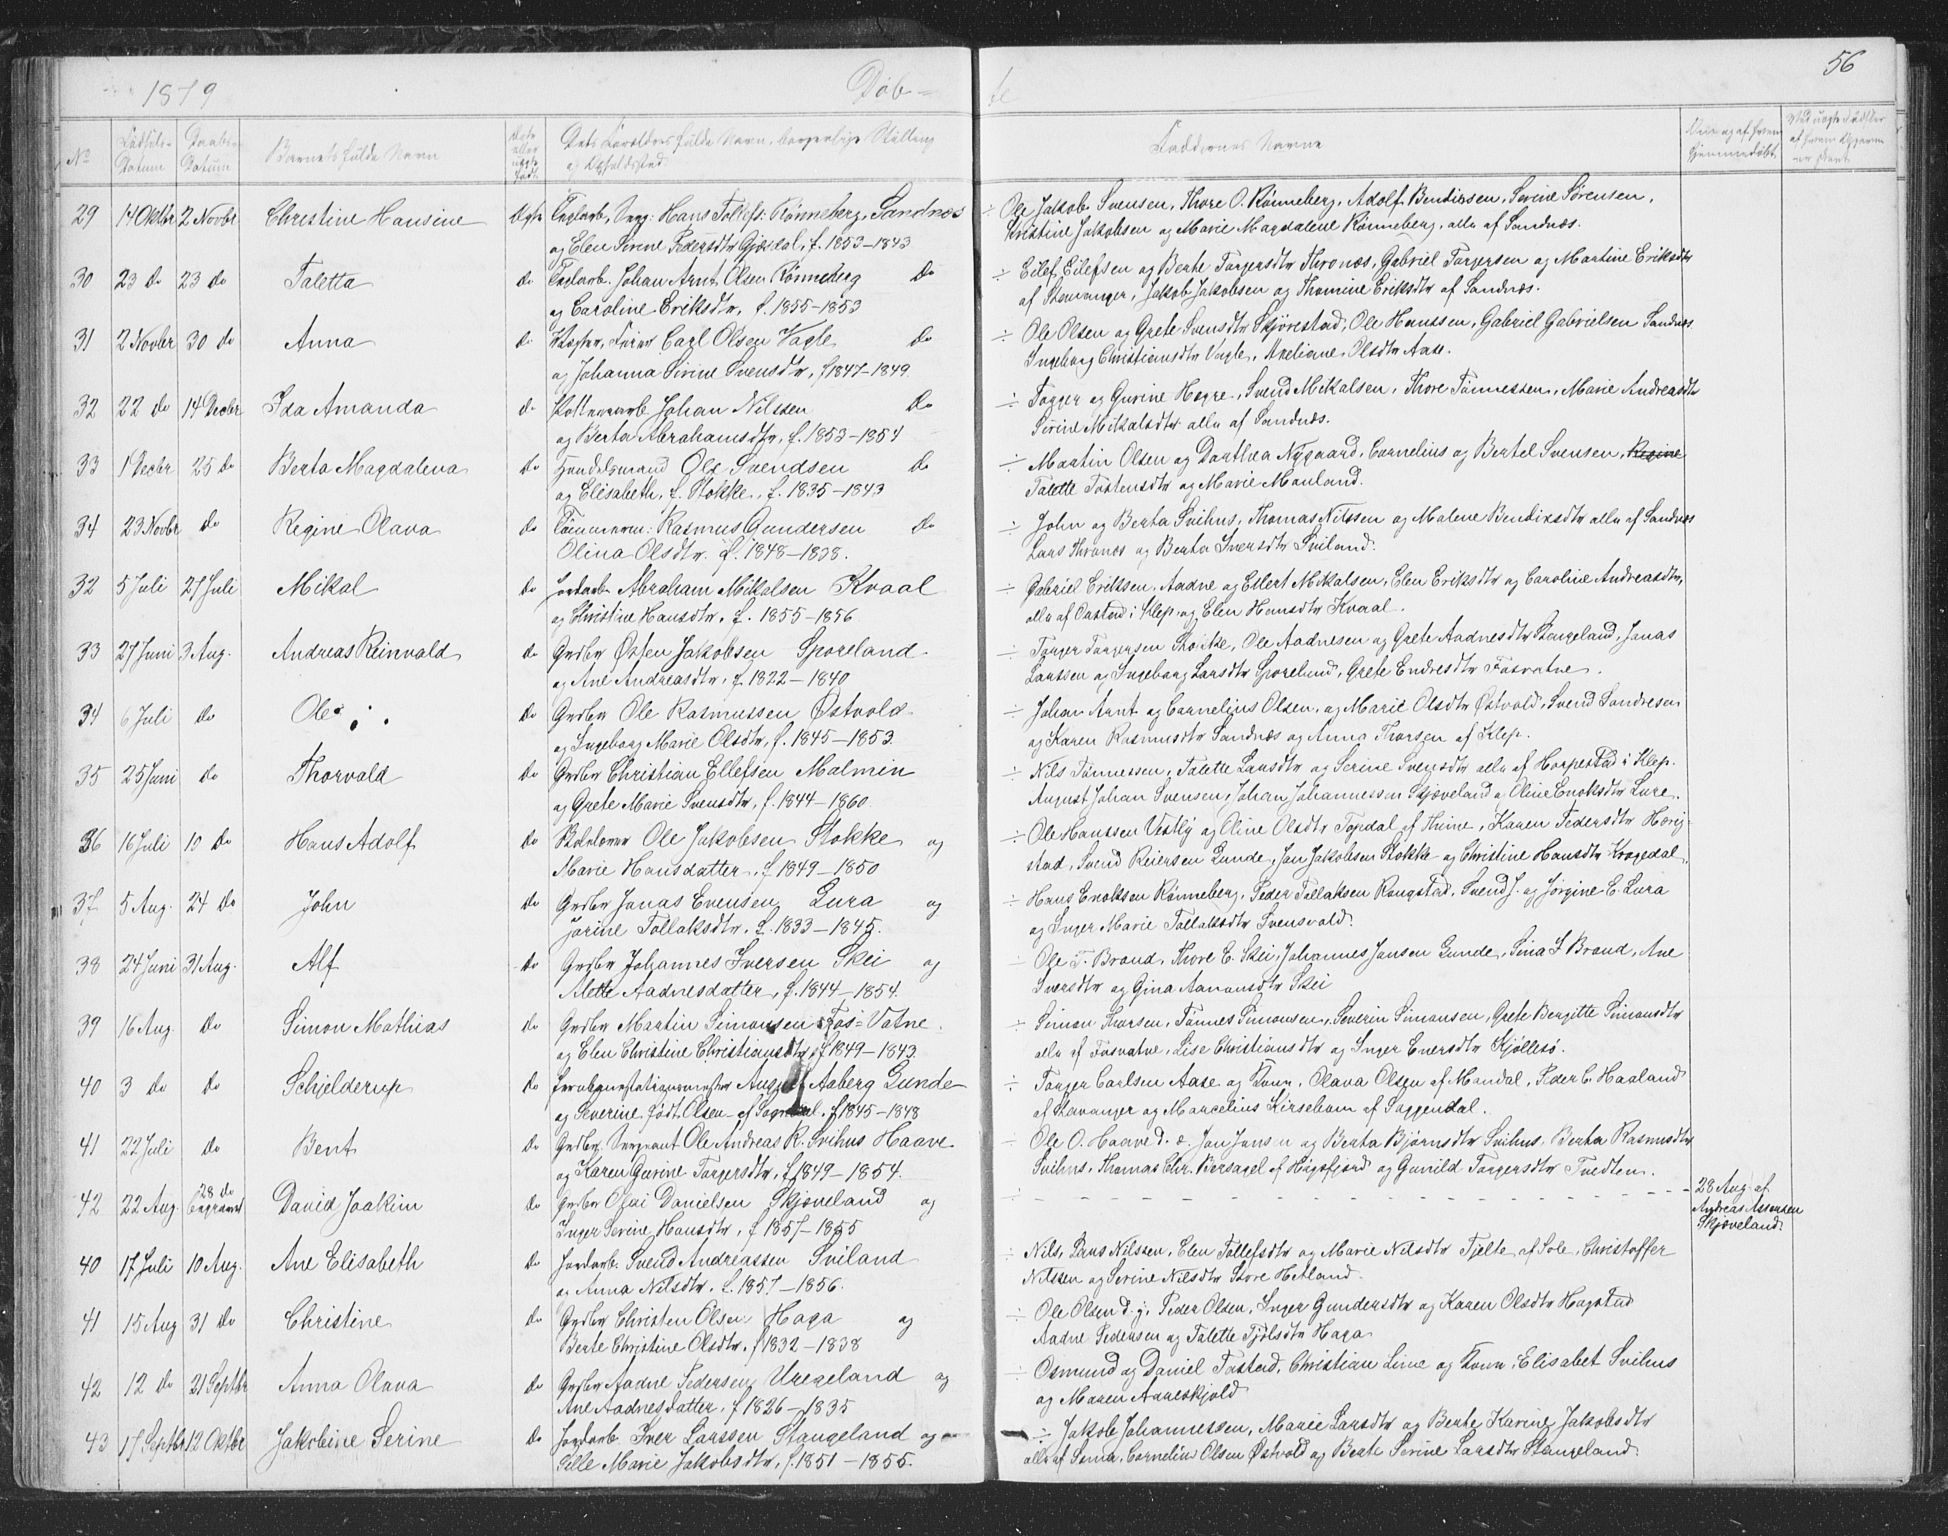 1879
Døb-
te
56
No
Fødsels-
Datum
Daabs-
Datum
Barnets fulde Navn
Ægte
eller
uægte
født
Dets Forældres fulde Navn, borgerlige Stilling
og Opholdssted
Faddernes Navne
Naar og af hvem
hjemmedøbt
29 14 Oktbr 2 Novbr Christine Hansine Ægte Teglarb, Hans Tollefs: Rønneberg, Sandnæs
og Elen Sirine Pedersdtr Gjesdal, f. 1853-1843
÷ Ole Jakob Svensen, Thore O. Rønneberg, Adolf Bendixsen, Serine Sørensen,
Kristine Jakobsen og Marie Magdalene Rønneberg, alle af Sandnæs.
30 23 do 23 do Taletta do Teglarb. Johan Arnt Olsen Rønneberg do
og Caroline Eriksdtr, f. 1855-1853
÷ Eilef Eilefsen og Berte Torgersdtr Thronæs, Gabriel Torgersen og Martine Eriksdtr
af Stavanger, Jakob Jakobsen og Thomine Eriksdtr af Sandnæs.
31 2 Novbr 30 do Anna do Carl Olsen Vagle do
og Johanna Sirine Svensdtr, f 1847-1849
÷ Ole Olsen og Grete Svensdtr Skjørestad, Ole Hanssen, Gabriel Gabrielsen Sandnæs
Ingeborg Christiansdtr Vagle, Olsdtr Aase.
32 22 do 14 Decbr Ida Amanda do Pottemarb Johan Nilssen do
og Berta Abrahamsdtr, f. 1853-1854
÷ Torger og Gurine Hogre, Svend Mikalsen, Thore Tønnessen, Marie Andreasdtr
Sirine Mikalsdtr alle af Sandnæs.
33 1 Decbr 25 do Berta Magdalena do Handelsmand Ole Svendsen do
og Elisabeth, f. Stokke, f. 1835-1843
÷ Martin Olsen og Dorthea Nygaard, Cornelius og Bertel Svensen, Regine
Talette Tostensdtr og Marie Monland.
34 23 Novbr do Regine Olava do Tømmerm: Rasmus Gundersen do
Olina Olsdtr. f. 1848-1838.
÷ John og Berta Svihus, Thomas Nilssen og Malene Bendixsdtr alle af Sandnæs
Lars Thronæs og Berta Iversdtr Sviland.
32 5 Juli 27 Juli Mikal do Jordarb Abraham Mikalsen Kvaal
og Christine Hansdtr, f. 1855-1856
÷ Gabriel Eriksen, Aadne og Ellert Mikalsen, Elen Eriksdtr og Caroline Andreasdtr,
alle af Orstad i Klep og Elen Hansdtr Kvaal.
33 27 Juni 3 Aug. Andreas Reinvald do Grdbr Østen Jakobsen Sporeland
og Ane Andreasdtr, f. 1822-1840
÷ Torger Torgersen Ole Aadnesen og Grete Aadnesdtr Stangeland, Jonas
Larssen og Ingeborg Larsdtr Sporeland, Grete Endresdtr Fosvatne.
34 6 Juli do Ole do Grdbr Ole Rasmussen Østvold
og Ingeborg Marie Olsdtr, f. 1845-1853.
÷ Johan Arnt og Cornelius Olsen, og Marie Olsdtr Østvold, Svend Sondresen
og Karen Rasmusdtr Sandnæs og Anna Thorsen af Klep.
35 25 Juni do Thorvald do Grdbr Christian Ellefsen Malmin
og Grete Marie Svensdtr, f. 1844-1860.
÷ Nils Tønnessen, Talette Larsdtr og Serine Svensdtr alle af Horpestad i Klep.
August Johan Svensen, Johan Johannessen Skjæveland og Oline Enoksdtr Lure.
36 16 Juli 10 do Hans Adolf do Skolelærer Ole Jakobsen Stokke og
Marie Hansdatter, f 1849-1850
÷ Ole Hanssen Vestly og Oline Olsdtr Topdal af Thime, Karen Pedersdtr Hørig-
stad, Svend Reiersen Lunde, Jan Jakobsen Stokke og Christine Hansdtr Krogedal.
37 5 Aug. 24 do John do Grdbr Jonas Evensen Lura og
Jørine Tollaksdtr. f. 1833-1845.
÷ Hans Enoksen Rønneberg, Peder Tollaksen Rongstad, Svend J. og Jørgine E. Lura
og Inger Marie Tollaksdtr Svensvold.
38 24 Juni 31 Aug. Alf do Grdbr Johannes Iversen Skei og
Alette Aadnesdatter, f. 1844-1854.
Ole T. Braud, Thore E. Skei, Johannes Jansen Lunde, Sina I Braud, Ane
Iversdtr og Gina Aanonsdtr Skei
39 16 Aug. do Simon Mathias do Grdbr Martin Simonsen Fos-Vatne.
og Elen Christine Christiansdtr, f 1849-1843.
÷ Simon Thorsen, Tønnes Simonsen, Severin Simonsen, Grete Bergitte Simonsdtr
alle af Fosvatne, Lise Christiansdtr og Inger Enersdtr Kjøllesø.
40 3 do do Schjelderup do Jernbanestationsmester August Aaberg Lunde
og Severine født Olsen af Sogndal, f 1845-1848
÷ Torger Carlsen Aase og Kone, Olava Olsen af Mandal, Peder C. Haaland
af Stavanger og Marcelius Kirseborn af Soggendal.
41 22 Juli do Bent do Grdbr Sergeant Ole Andreas R. Svihus Haave
og Karen Gurine Torgersdtr, f 1849-1854.
÷ Ole O. Haave d. æ. Jan Jansen og Berta Bjørnsdtr Svihus, Berta Rasmusdtr
Svihus, Thomas Chr. Bersagel af Høgsfjord og Gunild Torgersdtr Tvedten.
42 22 Aug. 28 do
David Joakim do Grdbr Olai Danielsen Skjæveland og
Inger Serine Hansdtr, f 1857-1855
÷ 28 Aug. af
Andreas Assersen
Skjæveland.
40 17 Juli 10 Aug. Ane Elisabeth do Jordarb. Svend Andreassen Sviland
og Anna Nilsdtr. f. 1857-1856.
÷ Nils, Lars Nilssen, Elen Tollefsdtr og Marie Nilsdtr Tjelte af Sole, Christoffer
Nilssen og Serine Nilsdtr Store Hetland.
41 15 Aug 31 do Christine do Grdbr Christen Olsen Haga og
Berte Christine Olsdtr, f 1832-1838
÷ Ole Olsen d. y, Peder Olsen, Inger Gundersdtr og Karen Olsdtr Hogstad
Aadne Pedersen og Talette Tjølsdtr Haga
42 12 do 21 Septbr Anna Olava do Grdbr Aadne Pedersen Uregeland og
Ane Aadnesdatter, f 1826-1835
÷ Osmund og Daniel Fostad, Christian Lime og Kone, Elisabet Svihus
og Maren Aareskjold
43 17 Septbr 12 Oktbr Jakobine Serine do Jordarb. Iver Larssen Stangeland og
Sille Marie Jakobsdtr, f. 1851-1855.
÷ Jakob Johannessen, Marie Larsdtr og Berte Karine Jakobsdtr
alle af Soma, Cornelius Olsen Østvold og Berte Serine Larsdtr Stangeland.